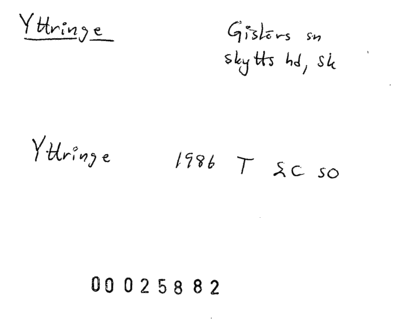 Yttringe
Gislövs sn
skytts hd, sk
Yttringe 1986 T SC SO
00025882